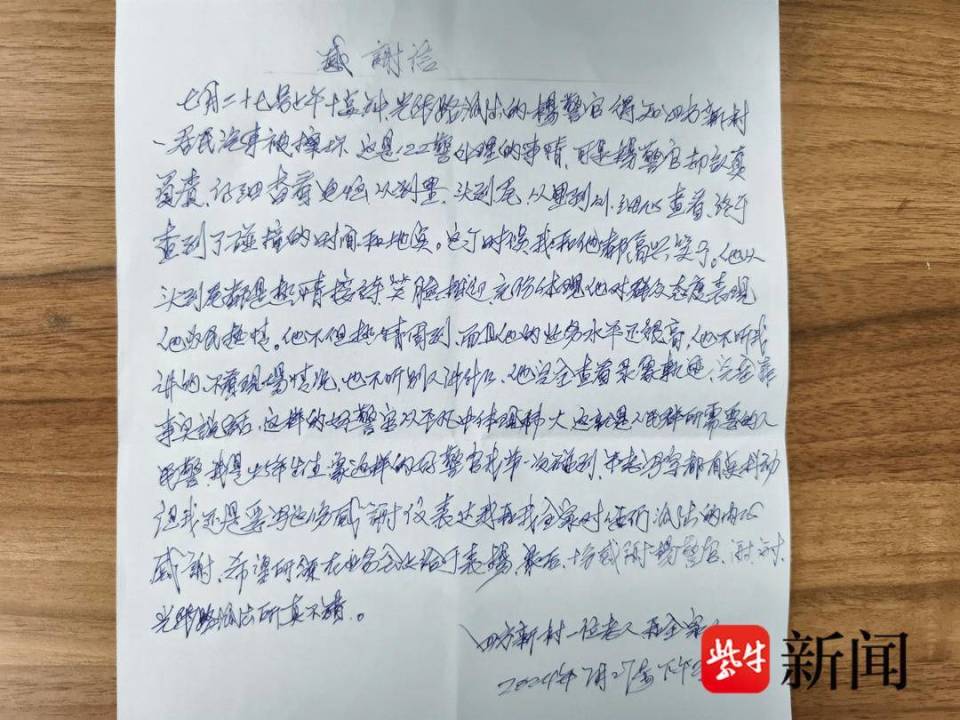 感謝信
七月二十七号上午十点钟,光华路派出所的楊警官得知四方新村
一居民汽車被擦坏,这是122警处理的事情,可是楊警官却认真
负责,仔细查看电脑,从到里,头到尾,从里到外,细心查看,终于
查到了碰撞的时间和地点。这个时侯我和他都高兴笑了。他从
头到尾都是热情接待笑脸相迎充份体现他对群众态度表现
他为民热情。他不但热情周到,而且他的业务水平还很高,他不听我
讲的,不看现場情况,也不听别人讲什么,他完全查看录象,完全靠
事实说话,这样的好警官从平凡中体现伟大这就是人民群所需要的人
民警,我是出生这样的好警官我第一次碰到,拿起笔写字都有点抖动
但我还是要写这份感謝仪表达我和我全家对你们派出所的内心
感謝,希望所领在业务会上给于表揚,最后,十分感謝楊警官,謝謝,
光华路派出所真不错。
四方新村一位老人和全家人
2024年7月27号下午
紫牛新闻